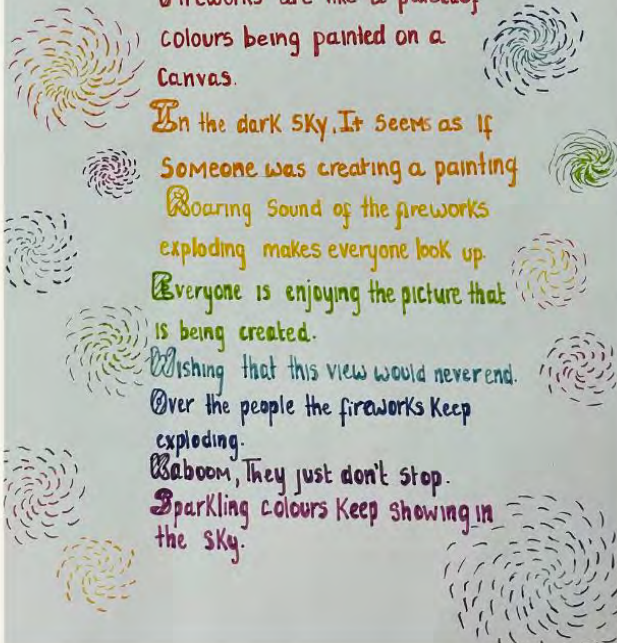 Fireworks are like a palette of
colours being painted on a
Canvas.
In the dark sky, It seems as if
Someone was creating a painting
Roaring Sound of the fireworks
exploding makes everyone look up.
Everyone is enjoying the picture that
is being created.
Wishing that this view would never end.
Over the people the fireworks Keep
exploding.
Kaboom, They just don't stop.
Sparkling colours Keep showing in
the sky.